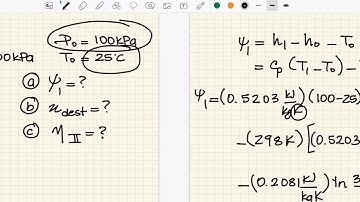 P₀ = 100kPa
00kPa T₀ = 25°C
(a) ψ₁ = ?
(b) x dest = ?
(c) η II = ?
ψ₁ = h₁ - h₀ - T₀
= Cp (T₁ - T₀) - T
ψ₁ = (0.5203 kJ/kgK)(100-25)
-(298K)[(0.5203
-(0.2081 kJ/kgK) ln 3